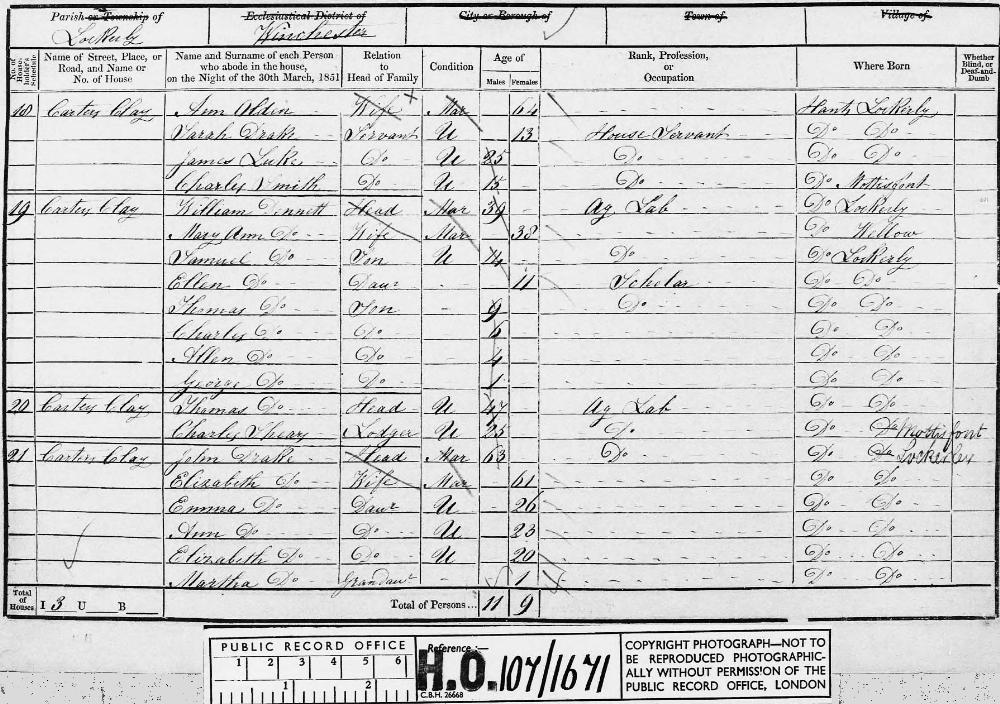 Parish or Township of
Ecclesiastical District of
City or Borough of
Town of
Village of
Lockerly
Winchester
No. of House-holder's Schedule
Name of Street, Place, or Road, and Name or No. of House
Name and Surname of each Person who abode in the house, on the Night of the 30th March, 1851
Relation to Head of Family
Condition
Age of
Males Females
Rank, Profession, or Occupation
Where Born
Whether Blind, or Deaf-and-Dumb
18 Carters Clay Ann Aldin Wife Mar 64 Hants Lockerly
Sarah Drake Servant U 13 House Servant Do Do
James Luke Do U 25 Do Do Do
Charles Smith Do U 15 Do Do Mottisfont
19 Carters Clay William Dennett Head Mar 39 Ag Lab Do Lockerly
Mary Ann Do Wife Mar 38 Do Wellow
Samuel Do Son U 14 Do Do Lockerly
Ellen Do Daur 11 Scholar Do Do
Thomas Do Son 9 Do Do Do
Charles Do Do 6 Do Do
Allen Do Do 4 Do Do
George Do Do 1 Do Do
20 Carters Clay Thomas Do Head U 47 Ag Lab Do Do
Charles Lodger U 25 Do Do Do Mottisfont
21 Carters Clay John Drake Head Mar 63 Do Do Do Lockerley
Elizabeth Do Wife Mar 61 Do Do
Emma Do Daur U 26 Do Do
Ann Do Do U 23 Do Do
Elizabeth Do Do U 20 Do Do
Martha Do Grandaur 1 Do Do
Total of Houses I 3 U B Total of Persons... 11 9
PUBLIC RECORD OFFICE
1 2 3 4 5 6
1 2
Reference:—
H.O. 107/1671
C.B.H. 26668
COPYRIGHT PHOTOGRAPH—NOT TO
BE REPRODUCED PHOTOGRAPHIC-
ALLY WITHOUT PERMISSION OF THE
PUBLIC RECORD OFFICE, LONDON